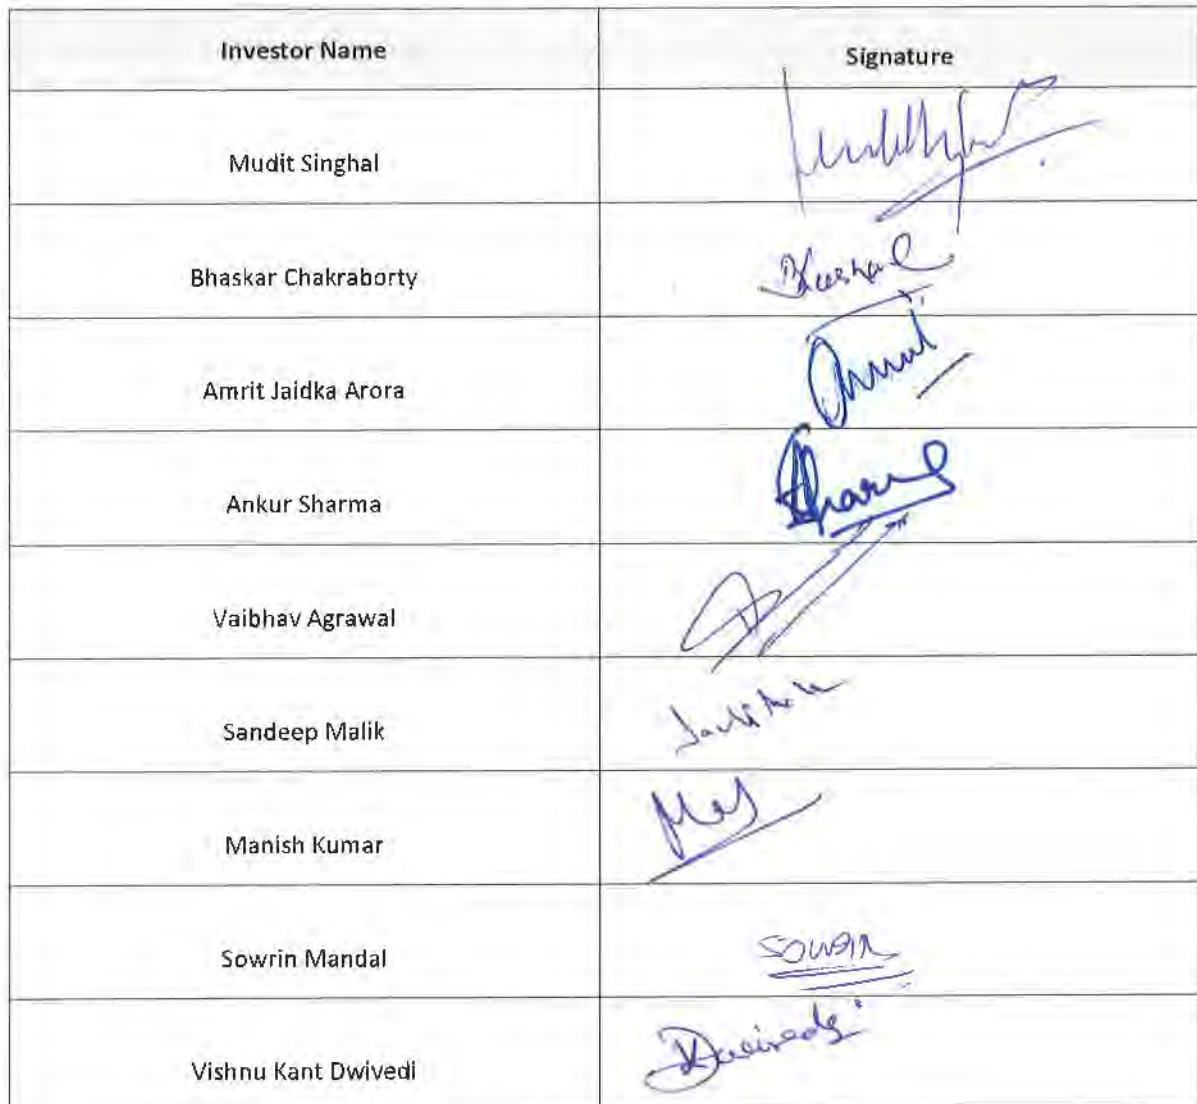 Investor Name Signature
Mudit Singhal
Bhaskar Chakraborty
Amrit Jaidka Arora Amrit
Ankur Sharma Sharma
Vaibhav Agrawal
Sandeep Malik
Manish Kumar
Sowrin Mandal Sowrin
Vishnu Kant Dwivedi Dwivedi